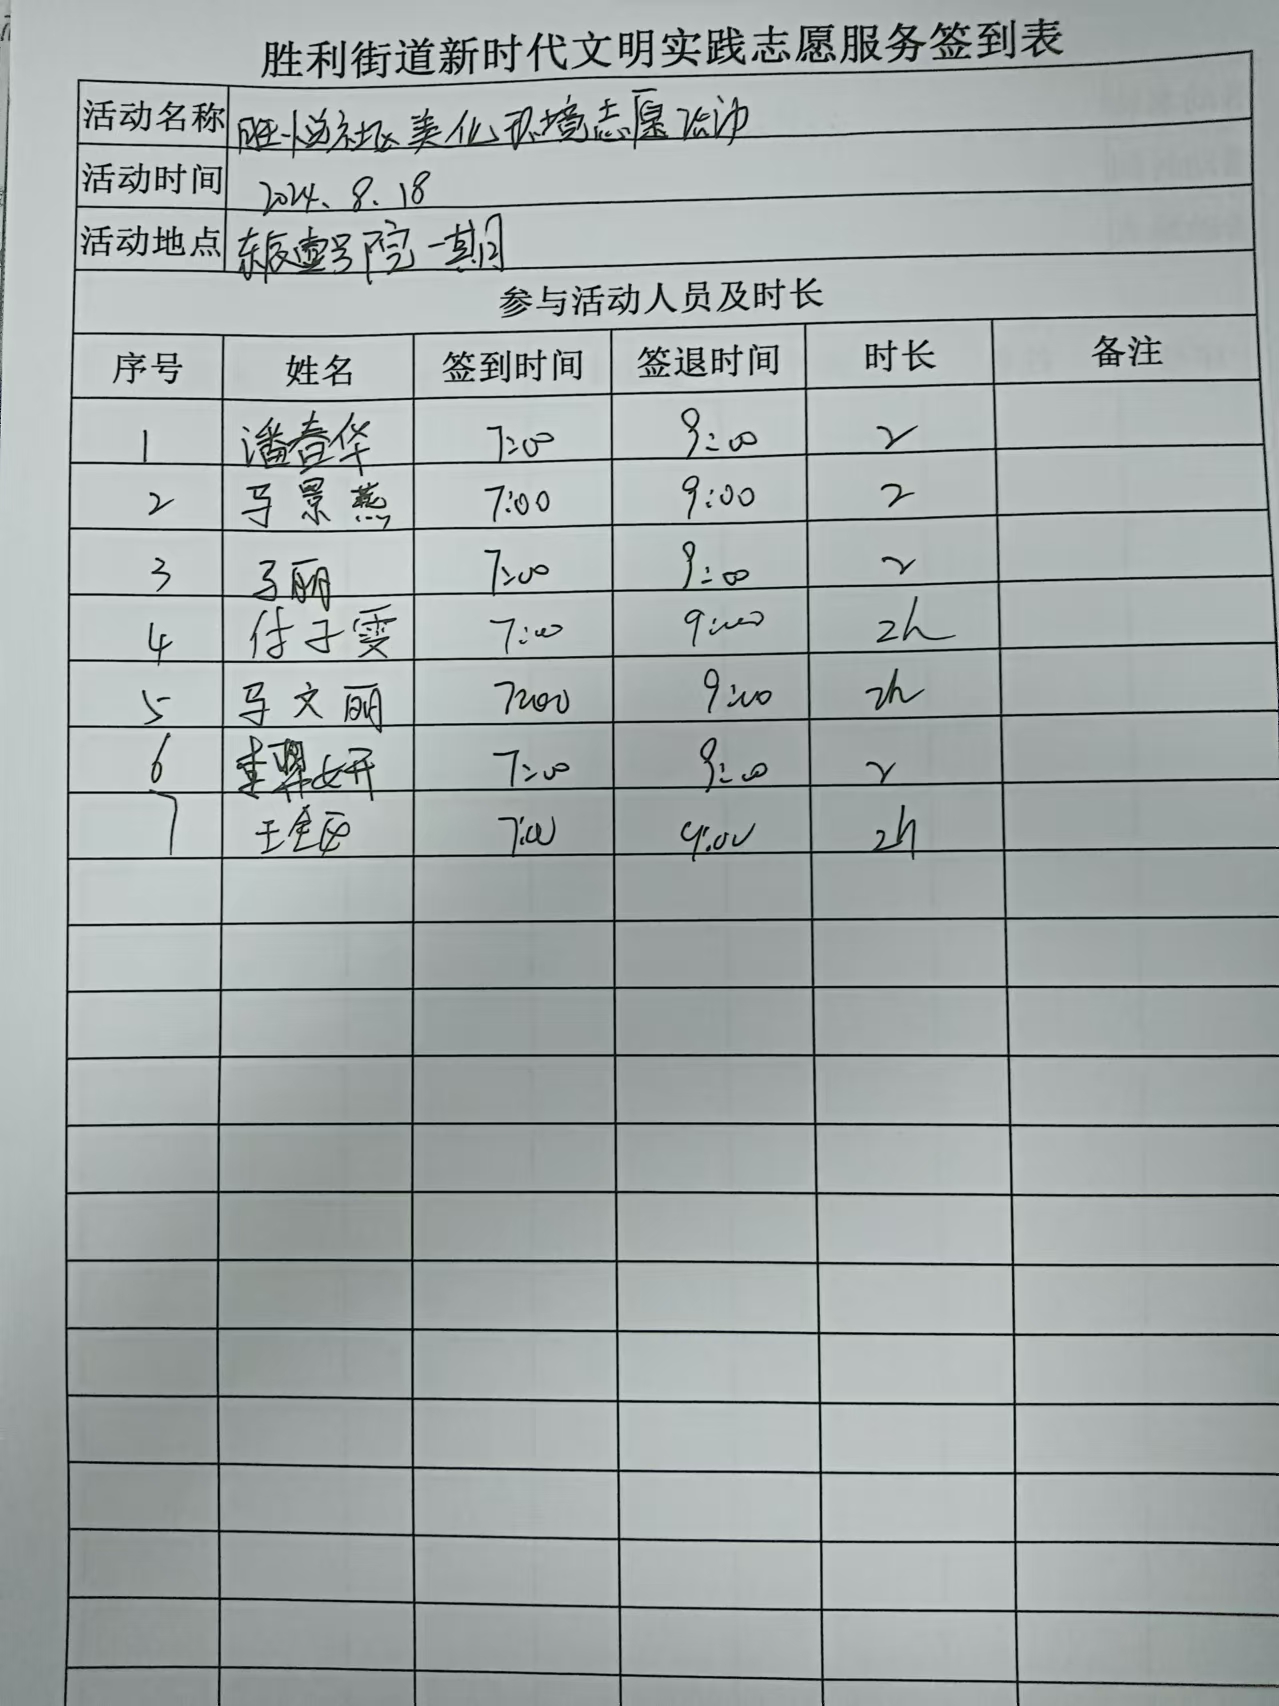 胜利街道新时代文明实践志愿服务签到表
活动名称 社区美化环境志愿活动
活动时间 2024.8.18
活动地点 东辰壹号院一期
参与活动人员及时长
序号 姓名 签到时间 签退时间 时长 备注
1 潘春华 7:00 9:00 2
2 马景燕 7:00 9:00 2
3 马丽 7:00 9:00 2
4 付子雯 7:00 9:00 2h
5 马文丽 7:00 9:00 2h
6 李 妍 7:00 9:00 2
7 王 7:00 9:00 2h